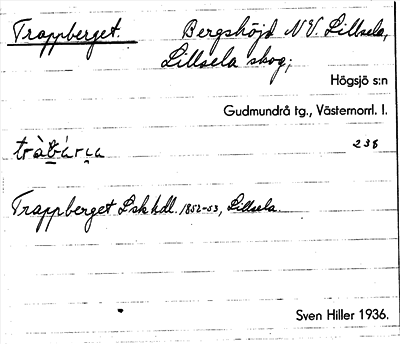 Trappberget. Bergshöjd NV. Lillsela,
Lillsela skog;
Högsjö s:n
Gudmundrå tg., Västernorrl. l.
238
Trappberget Lskhdl. 1852-53, Lillsela.
Sven Hiller 1936.